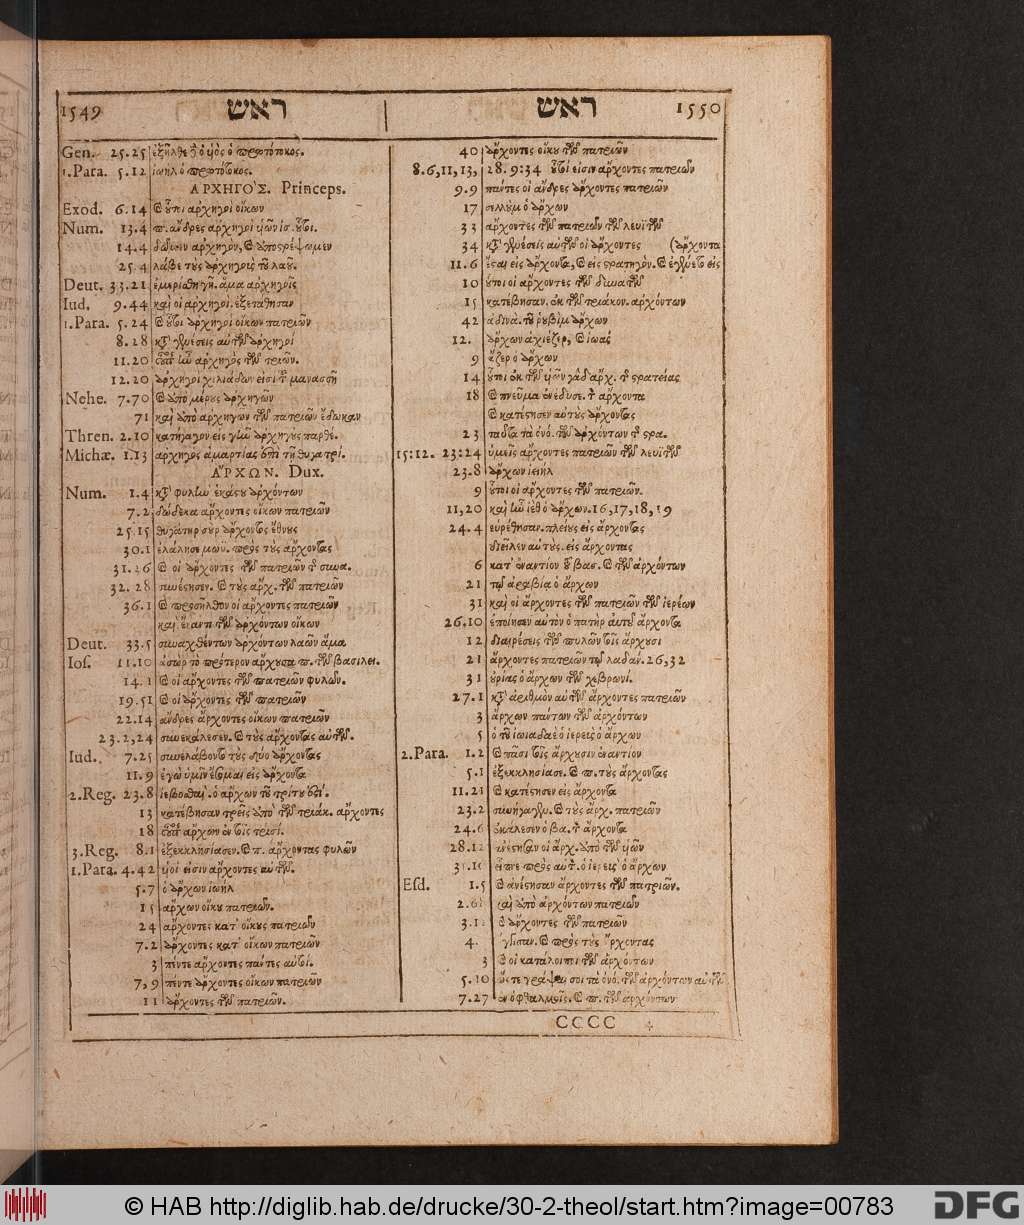 1549 ראש
Gen. 25.25 ὁ πρωτότοκος.
1.Para. 5.12 ἰωὴλ ὁ πρωτότοκος.
ΑΡΧΗΓΟΣ. Princeps.
Exod. 6.14 οὗτοι ἀρχηγοὶ οἴκων
Num. 13.4 π. ἄνδρες ἀρχηγοὶ υἱῶν ἰσ. οὗτοι.
14.4 δῶμεν ἀρχηγὸν, καὶ ἀποστρέψωμεν
25.4 λάβε τοὺς ἀρχηγοὺς τοῦ λαοῦ.
Deut. 33.21 ἐμερίσθη γῆ. ἅμα ἀρχηγοῖς
Iud. 9.44 καὶ οἱ ἀρχηγοὶ. ἐξετάθησαν
1.Para. 5.24 καὶ οὗτοι ἀρχηγοὶ οἴκων πατριῶν
8.28 κατὰ γενέσεις αὐτῶν ἀρχηγοὶ
11.20 ἦν ἀρχηγὸς τῶν τριῶν.
12.20 ἀρχηγοὶ χιλιάδων εἰσὶ τοῦ μανασσῆ
Nehe. 7.70 καὶ ἀπὸ μέρους ἀρχηγῶν
71 καὶ ἀπὸ ἀρχηγῶν τῶν πατριῶν ἔδωκαν
Thren. 2.10 κατήγαγον εἰς γῆν ἀρχηγοὺς παρθέ.
Michæ. 1.13 ἀρχηγὸς ἁμαρτίας ἐστὶ τῇ θυγατρί.
ἌΡΧΩΝ. Dux.
Num. 1.4 κατὰ φυλὴν ἑκάστου ἀρχόντων
7.2 δώδεκα ἄρχοντες οἴκων πατριῶν
25.15 θυγάτηρ σοὺρ ἄρχοντος ἔθνους
30.1 ἐλάλησε μωϋ. πρὸς τοὺς ἄρχοντας
31.26 καὶ οἱ ἄρχοντες τῶν πατριῶν τῆς συνα.
32.28 συνέστησεν. καὶ τοὺς ἄρχ. τῶν πατριῶν
36.1 καὶ προσῆλθον οἱ ἄρχοντες πατριῶν
καὶ ἔναντι τῶν ἀρχόντων οἴκων
Deut. 33.5 συναχθέντων ἀρχόντων λαῶν ἅμα
Ios. 11.10 ἀσὼρ τὸ πρότερον ἄρχουσα π. τῶν βασιλει.
14.1 καὶ οἱ ἄρχοντες τῶν πατριῶν φυλῶν.
19.51 καὶ οἱ ἄρχοντες τῶν πατριῶν
22.14 ἄνδρες ἄρχοντες οἴκων πατριῶν
23.2,24 συνεκάλεσεν. καὶ τοὺς ἄρχοντας αὐτῶν.
Iud. 7.25 συνέλαβον τοὺς δύο ἄρχοντας
11.9 ἐγὼ ὑμῖν ἔσομαι εἰς ἄρχοντα
2.Reg. 23.8 ὁ ἄρχων τοῦ τρίτου ἐστί.
13 κατέβησαν τρεῖς ἀπὸ τῶν τριάκ. ἄρχοντες
18 ἄρχων ἐν τοῖς τρισί.
3.Reg. 8.1 ἐξεκκλησίασεν. καὶ π. ἄρχοντας φυλῶν
1.Para. 4.42 υἱοὶ εἰσιν ἄρχοντες αὐτῶν.
5.7 ὁ ἄρχων ἰωὴλ
15 ἄρχων οἴκου πατριῶν.
24 ἄρχοντες κατ' οἴκους πατριῶν
7.2 ἄρχοντες κατ' οἴκων πατριῶν
3 πέντε ἄρχοντες πάντες αὐτοί.
7,9 πέντε ἄρχοντες οἴκων πατριῶν
11 ἄρχοντες τῶν πατριῶν.
ראש 1550
40 ἄρχοντες οἴκου τῶν πατριῶν
8.6,11,13, 28. 9:34 οὗτοί εἰσιν ἄρχοντες πατριῶν
9.9 πάντες οἱ ἄνδρες ἄρχοντες πατριῶν
17 σελλοὺμ ὁ ἄρχων
33 ἄρχοντες τῶν πατριῶν τῶν λευιτῶν
34 κατὰ γενέσεις αὐτῶν οἱ ἄρχοντες (ἄρχοντα
11.6 ἔσται εἰς ἄρχοντα, καὶ εἰς στρατηγόν. καὶ ἐγένετο εἰς
10 οὗτοι οἱ ἄρχοντες τῶν δυνατῶν
15 κατέβησαν. ἐκ τῶν τριάκον. ἀρχόντων
42 ἀδινὰ. τοῦ ῥουβὶμ ἄρχων
12. ἄρχων ἀχιέζερ, καὶ ἰωάς
9 ἄζερ ὁ ἄρχων
14 οὗτοι ἐκ τῶν υἱῶν γὰδ ἄρχ. τῆς στρατείας
18 καὶ πνεῦμα ἐνέδυσε. τὸν ἄρχοντα
καὶ κατέστησεν αὐτοὺς ἄρχοντας
23 ταῦτα τὰ ὀνό. τῶν ἀρχόντων τῆς στρα.
15:12. 23:24 ὑμεῖς ἄρχοντες πατριῶν τῶν λευιτῶν
23.8 ἄρχων ἰειὴλ
9 οὗτοι οἱ ἄρχοντες τῶν πατριῶν.
11,20 καὶ ἦν ἰὲθ ὁ ἄρχων. 16,17,18,19
24.4 εὑρέθησαν. πλείους εἰς ἄρχοντας
διεῖλεν αὐτοὺς. εἰς ἄρχοντας
6 κατ' ἐναντίον τοῦ βασ. καὶ τῶν ἀρχόντων
21 τῷ ἀραβία ὁ ἄρχων
31 καὶ οἱ ἄρχοντες τῶν πατριῶν τῶν ἱερέων
26.10 ἐποίησεν αὐτὸν ὁ πατὴρ αὐτοῦ ἄρχοντα
12 διαιρέσεις τῶν πυλῶν τοῖς ἄρχουσι
21 ἄρχοντες πατριῶν τῷ λαδάν. 26,32
31 οὐρίας ὁ ἄρχων τῶν χεβρωνί.
27.1 κατὰ ἀριθμὸν αὐτῶν ἄρχοντες πατριῶν
3 ἄρχων πάντων τῶν ἀρχόντων
5 ὁ τοῦ ἰωιαδαὲ ὁ ἱερεὺς ὁ ἄρχων
2.Para. 1.2 καὶ πᾶσι τοῖς ἄρχουσιν ἐναντίον
5.1 ἐξεκκλησίασε. καὶ π. τοὺς ἄρχοντας
11.21 καὶ κατέστησεν εἰς ἄρχοντα
23.2 συνήγαγεν. καὶ τοὺς ἄρχ. πατριῶν
24.6 ἐκάλεσεν ὁ βα. τὸν ἄρχοντα
28.12 ἀνέστησαν οἱ ἄρχ. ἀπὸ τῶν υἱῶν
31.10 εἶπε πρὸς αὐτὸν. ὁ ἱερεὺς ὁ ἄρχων
Esd. 1.5 καὶ ἀνέστησαν ἄρχοντες τῶν πατριῶν.
2.68 καὶ ἀπὸ ἀρχόντων πατριῶν
3.12 καὶ ἄρχοντες τῶν πατριῶν
4. ἤγγισαν. καὶ πρὸς τοὺς ἄρχοντας
3 καὶ οἱ κατάλοιποι τῶν ἀρχόντων
5.10 ὥστε γράψαι σοι τὰ ὀνό. τῶν ἀρχόντων αὐτῶν
7.27 ἐν ὀφθαλμοῖς. καὶ π. τῶν ἀρχόντων
CCCC
© HAB http://diglib.hab.de/drucke/30-2-theol/start.htm?image=00783
DFG